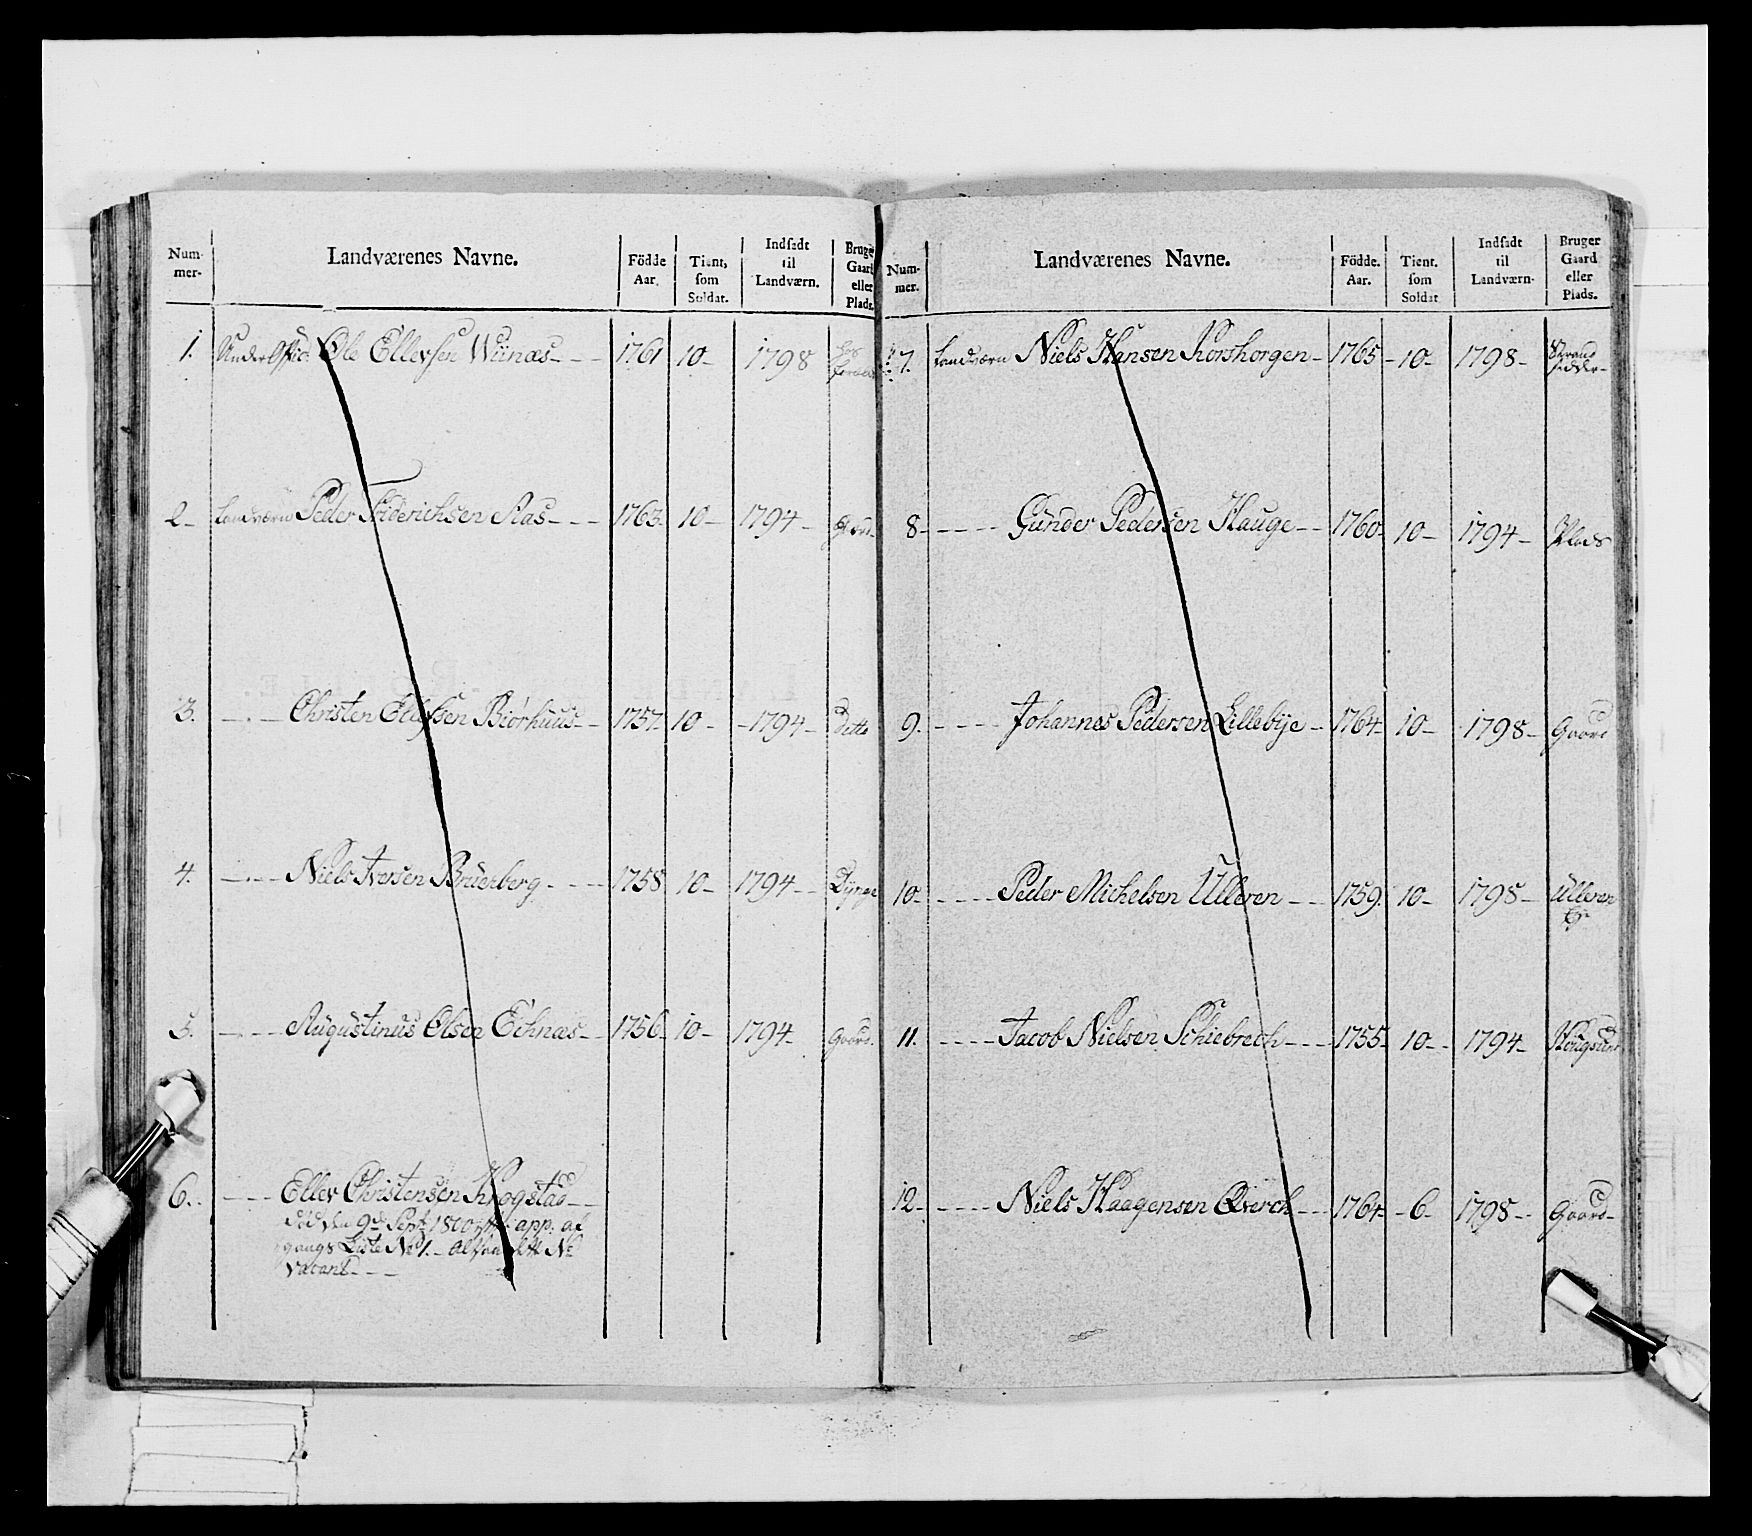 Num-
mer-
Landværenes Navne.
Födde
Aar.
Tient,
som
Soldat.
Indsadt
til
Landværn.
Bruger
Gaard
eller
Plads.
1. Under Offic: Ole Ellevsen Wiinæs 1761 10 1798
2 Landværn Peder Friderichsen Aas 1763 10 1794 Gaard
3. Christen Biørhuus 1757 10 1794 Ditto
4. Niels Iversen 1758 10 1794
5. Augustinus Olsen Echnæs 1756 10 1794 Gaard
6. Ellev Christensen Krogstad
død den 9de Sept: 1800 app. af
gangs Liste No 1. No
vacant
Num-
mer.
Landværenes Navne.
Födde.
Aar.
Tient.
som
Soldat
Indsadt
til
Landværn-
Bruger
Gaard
eller
Plads.
7. Landværn Niels Hansen Korshorgen 1765 10 1798 Strand
sidder
8 Gunder Pedersen Hauge 1760 10 1794 Plads
9. Johannes Pedersen Lillebye 1764 10 1798 Gaard
10 Peder Michelsen Ulleren 1759 10 1798 Ulleren
11. Jacob Nielsen Schiebrech 1755 10 1794
12 Niels Haagensen Qverch 1764 6 1798 Gaard